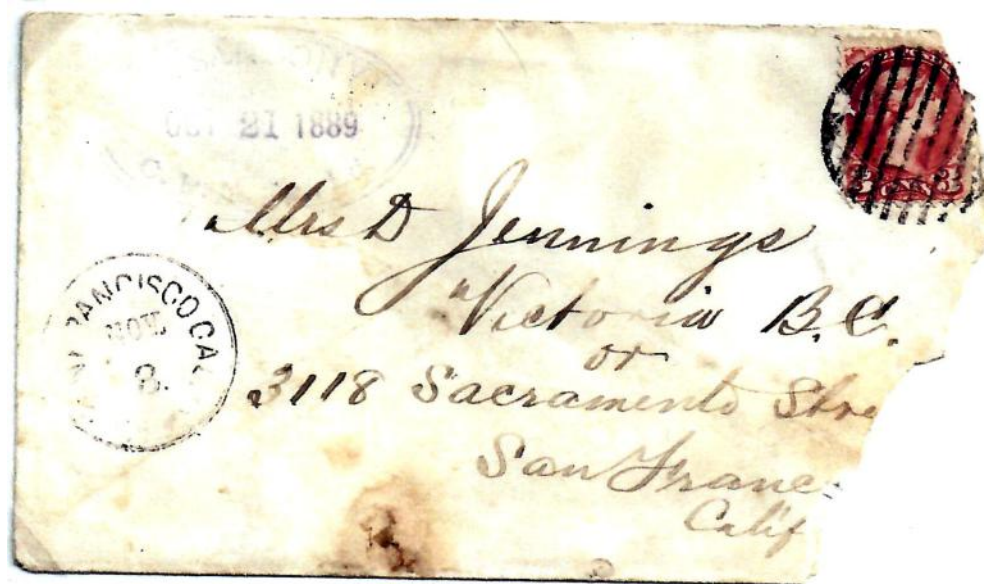 OCT 21 1889
Mrs D Jennings
Victoria B.C.
or
3118 Sacramento Stre
San Franc
Calif
RANCISCO CAL
NOV
8
3